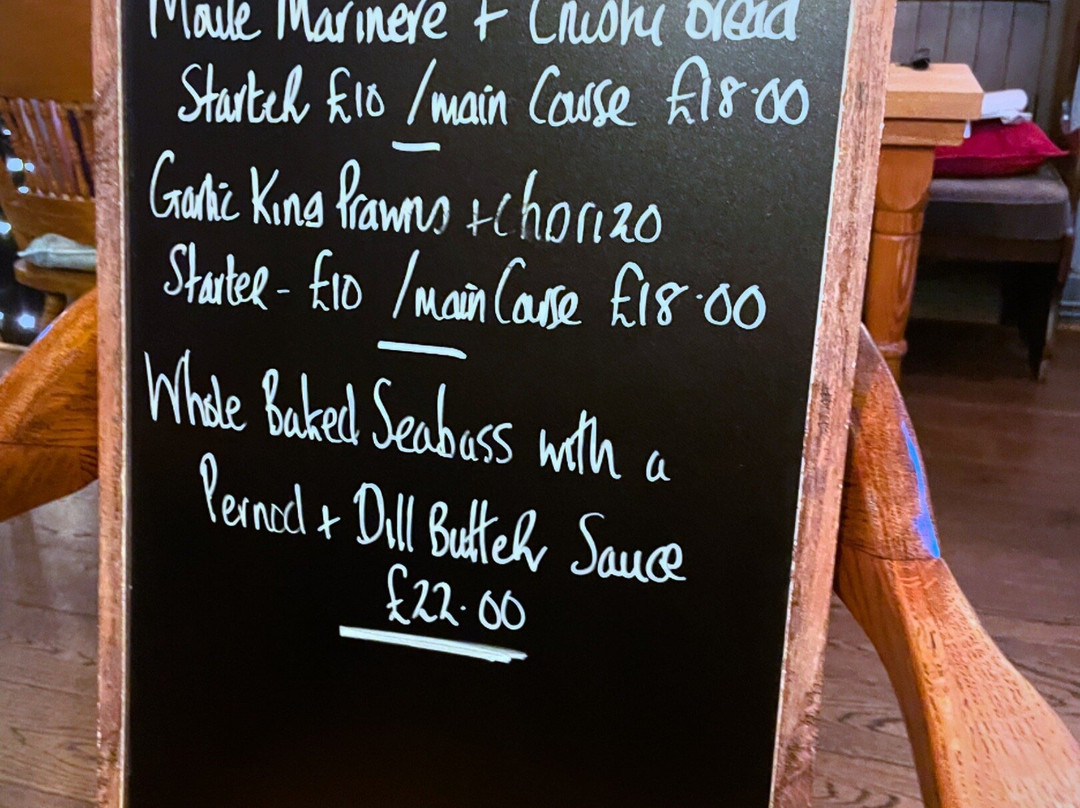 Moule Marinere + Crusty Bread
Starter £10 /main Course £18.00
Garlic King Prawns + chorizo
Starter - £10 /main Course £18.00
Whole Baked Seabass with a
Pernod + Dill Butter Sauce
£22.00